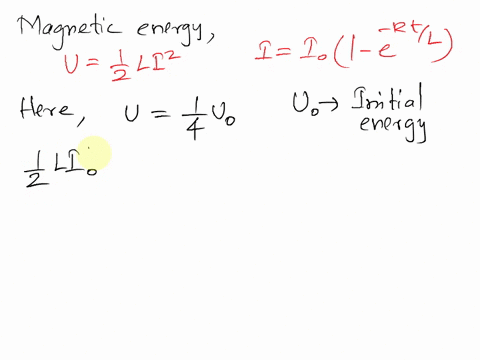 Magnetic energy,
U = 1/2 LI²
I = I₀ (1 - e^{-Rt/L})
Here, U = 1/4 U₀
U₀ → Initial energy
1/2 LI₀